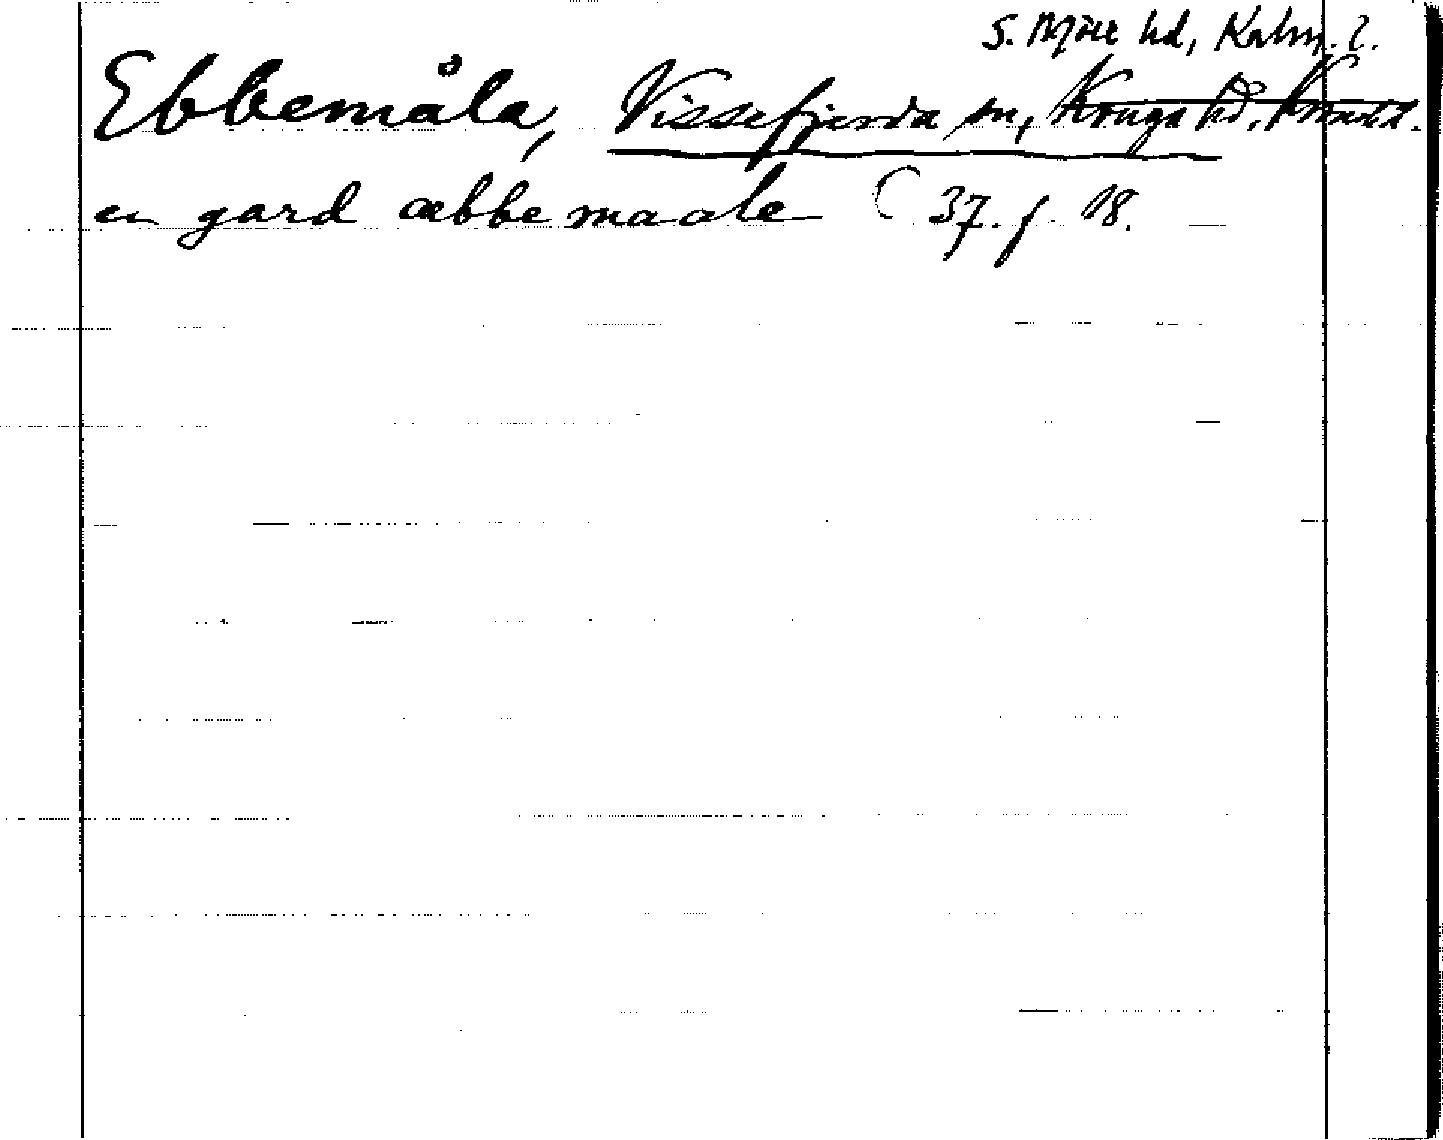 S. Möre hd, Kalm. l.
Ebbemåla, Vissefjerda sn, Konga hd,
en gard æbbemaale C 37. f. 18.